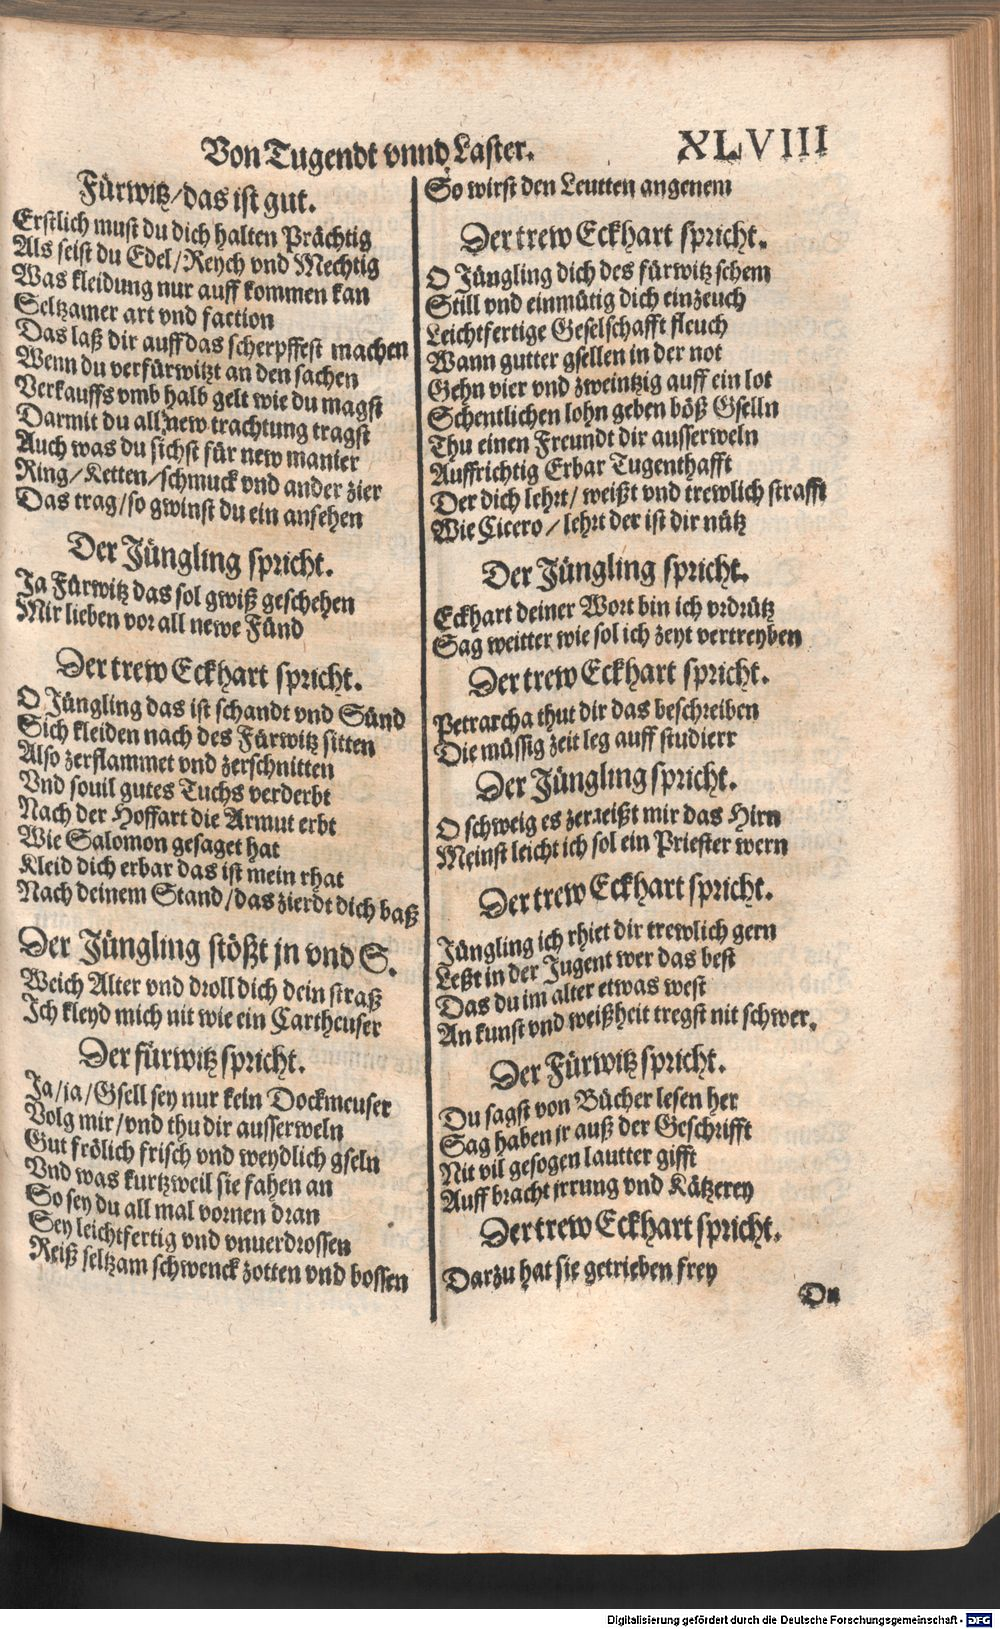 Von Tugendt vnnd Laster.
XLVIII
Fürwitz/das ist gut.
Erstlich must du dich halten Prächtig
Als seist du Edel/Reych vnd Mechtig
Was kleidung nur auff kommen kan
Seltzamer art vnd faction
Das laß dir auff das scherpffest machen
Wenn du verfürwitzt an den sachen
Verkauffs vmb halb gelt wie du magst
Darmit du all new trachtung tragst
Auch was du sichst für new manier
Ring/Ketten/schmuck vnd ander zier
Das trag/so gwinst du ein ansehen
Der Jüngling spricht.
Ja Fürwitz das sol gwiß geschehen
Mir lieben vor all newe Fünd
Der trew Eckhart spricht.
O Jüngling das ist schandt vnd Sünd
Sich kleiden nach des Fürwitz sitten
Also zerflammet vnd zerschnitten
Vnd souil gutes Tuchs verderbt
Nach der Hoffart die Armut erbt
Wie Salomon gesaget hat
Kleid dich erbar das ist mein rhat
Nach deinem Stand/das zierdt dich baß
Der Jüngling stößt jn vnd S.
Weich Alter vnd droll dich dein straß
Ich kleyd mich nit wie ein Cartheuser
Der fürwitz spricht.
Ja/ja/Gsell sey nur kein Dockmeuser
Volg mir/vnd thu dir ausserweln
Gut frölich frisch vnd weydlich gseln
Vnd was kurtzweil sie fahen an
So sey du all mal vornen dran
Sey leichtfertig vnd vnuerdrossen
Reiß seltzam schwenck zotten vnd bossen
So wirst den Leutten angenem
Der trew Eckhart spricht.
O Jüngling dich des fürwitz schem
Still vnd einmütig dich einzeuch
Leichtfertige Geselschafft fleuch
Wann gutter gsellen in der not
Gehn vier vnd zweintzig auff ein lot
Schentlichen lohn geben böß Gselln
Thu einen Freundt dir ausserweln
Auffrichtig Erbar Tugenthafft
Der dich lehrt/weißt vnd trewlich strafft
Wie Cicero/lehrt der ist dir nütz
Der Jüngling spricht.
Eckhart deiner Wort bin ich vrdrütz
Sag weitter wie sol ich zeyt vertreyben
Der trew Eckhart spricht.
Petrarcha thut dir das beschreiben
Die müssig zeit leg auff studierr
Der Jüngling spricht.
O schweig es zerreißt mir das Hirn
Meinst leicht ich sol ein Priester wern
Der trew Eckhart spricht.
Jüngling ich rhiet dir trewlich gern
Leßt in der Jugent wer das best
Das du im alter etwas west
An kunst vnd weißheit tregst nit schwer.
Der Fürwitz spricht.
Du sagst von Bücher lesen her
Sag haben jr auß der Geschrifft
Nit vil gesogen lautter gifft
Auff bracht jrrung vnd Kätzerey
Der trew Eckhart spricht.
Darzu hat sie getrieben frey
Du
Digitalisierung gefördert durch die Deutsche Forschungsgemeinschaft - DFG